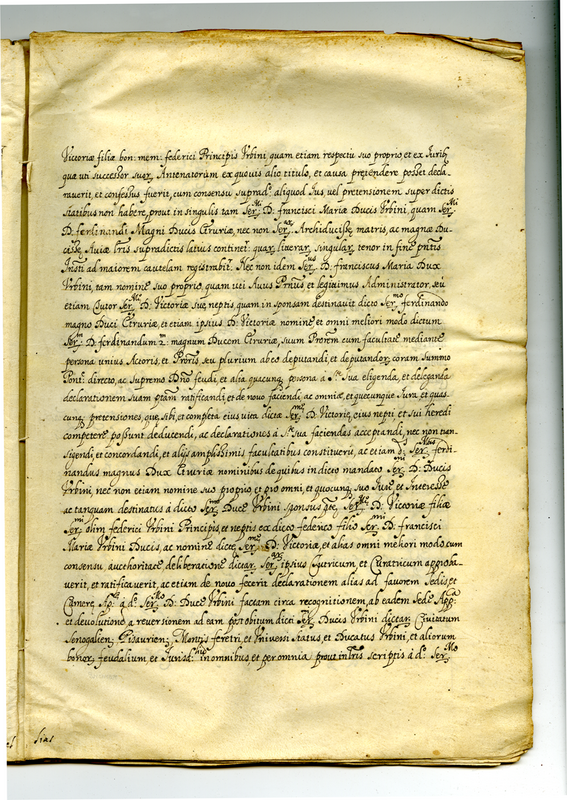 Victoriæ filiæ bon: mem: federici Principis Urbini, quam etiam respectu suo proprio, et ex Iurib,
quæ uti successor suor, Antenatorum ex quouis alio titulo, et causa pretendere posset decla-
rauerit, et confessus fuerit, cum consensu suprad: aliquod Ius, vel pretensionem super dictis
statibus non habere, prout in singulis tam Ser:mi D. francisci Mariæ Ducis Urbini, quam Ser:mi
D. ferdinandi Magni Ducis Etruriæ, nec non Ser: Archiducissæ matris, ac magnæ Du-
cissæ Auiæ lris supradictis latius continet: quar, liverar, singular, tenor in fine pntis
Insti ad maiorem cautelam registrabit. Nec non idem Ser:mus D. franciscus Maria Dux
Urbini, tam nomine suo proprio, quam uti Auus Prnus et legitimus Administrator, seu
etiam Tutor Ser: D. Victoriæ suæ neptis, quam in sponsam destinauit dicto Ser:mo ferdinando
magno Duci Etruriæ, et etiam ipsius D. Victoriæ nomine et omni meliori modo dictum
Ser:m D: ferdinandum 2. magnum Ducem Etruriæ, suum Prorem cum facultate mediante
persona unius Actoris, et Proris, seu plurium ab eo deputandi, et deputandor, coram Summo
Pont: directo, ac supremo Dno feudi, et alia quacunq, persona à Ste Sua eligenda, et deleganda
declarationem suam ptam ratificandi et de nouo faciendi, ac omnia, et quecunque Iura, et quas-
cunq, pretensiones, quæ sibi, et competia eius uita dicta Ser:me D: Victoriæ, eius nepti et sui heredi
competere possunt deducendi, ac declarationes à Ste sua faciendas acceptandi, nec non tran-
sigendi, et concordandi, et alijs amplissimis facultatibus constituerit, ac etiam ds Ser:mus ferdi-
nandus magnus Dux Etruriæ nominibus de quibus in dicto mandato Ser:mi D: Ducis
Urbini, nec non etiam nomine suo proprio, et pro omni, et quocunq, suo Iure et Interesse
ac tanquam destinatus à dicto Ser:mo Duce Urbini sponsus pte, Ser:me D: Victoriæ filiæ
Ser:mi olim federici Urbini Principis, et neptis ex dicto federico filio Ser:mi D: francisci
Mariæ Urbini Ducis, ac nomine dictæ Ser:me D: Victoriæ, et alias omni meliori modo, cum
consensu aucthoritate deliberatione dictar, Ser: ipsius Tutricum, et Curatricum approba-
uerit, et ratificauerit, ac etiam de nouo fecerit declarationem alias ad fauorem Sedis, et
Cameræ Apcæ à do: Ser:mo D: Duce Urbini factam circa recognitionem, ab eadem Sede App:
et deuolutione, à reuersionem ad eam post obitum dicti Ser:mi Ducis Urbini dictar, Ciuitatum
Senogalien: Pisaurien: Montis feretri, et Uniuersi Status et Ducatus Urbini, et aliorum
bonor, feudalium, et Iurisd:nis in omnibus et per omnia prout in lris scriptis à do: Ser:Mo
sias